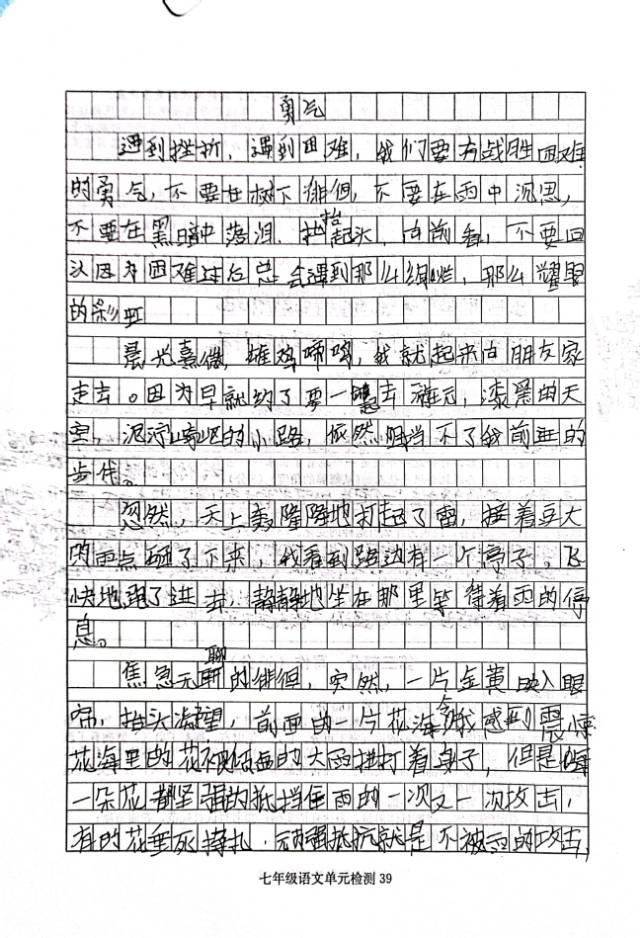 勇气
遇到挫折，遇到困难，我们要有战胜困难
的勇气，不要在树下徘徊，不要在雨中沉思，
不要在黑暗中落泪。抬起头，向前看，不要回
认因为困难过后总会遇到那么绚烂，那么耀眼
的彩虹
晨光熹微，雄鸡啼鸣，我就起来向朋友家
走去。因为早就约了要一起去游玩，漆黑的天
空，泥泞崎岖的小路，依然阻挡不了我前进的
步伐。
忽然，天上轰隆隆地打起了雷，接着豆大
的雨点砸了下来，我看到路边有一个亭子，飞
快地跑了进去，静静地坐在那里等待着雨的停
息。
焦急无聊的徘徊，突然，一片金黄映入眼
帘，抬头凝望，前面的一片花海令我感到震惊
花海里的花被倾盆的大雨拙打着身子，但是每
一朵花都坚强的抵挡住雨的一次又一次攻击，
有的花垂死挣扎，顽强抵抗就是不被雨的攻击，
七年级语文单元检测 39